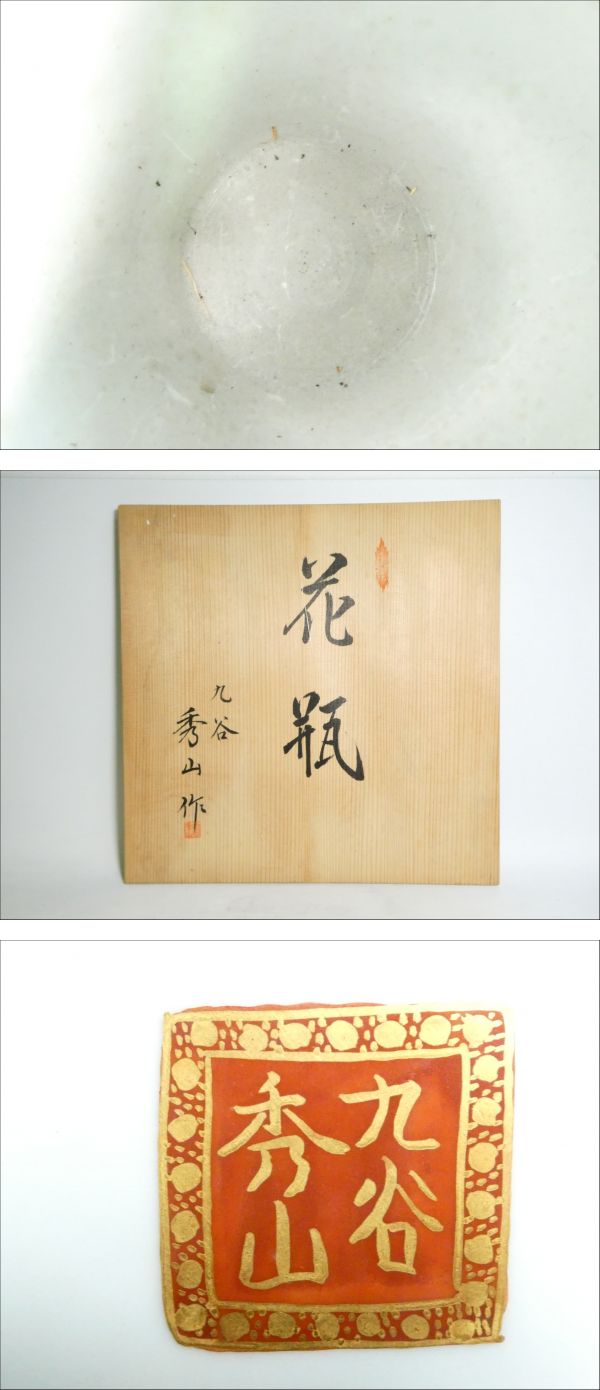 花瓶
九谷
秀山作
九谷
秀山